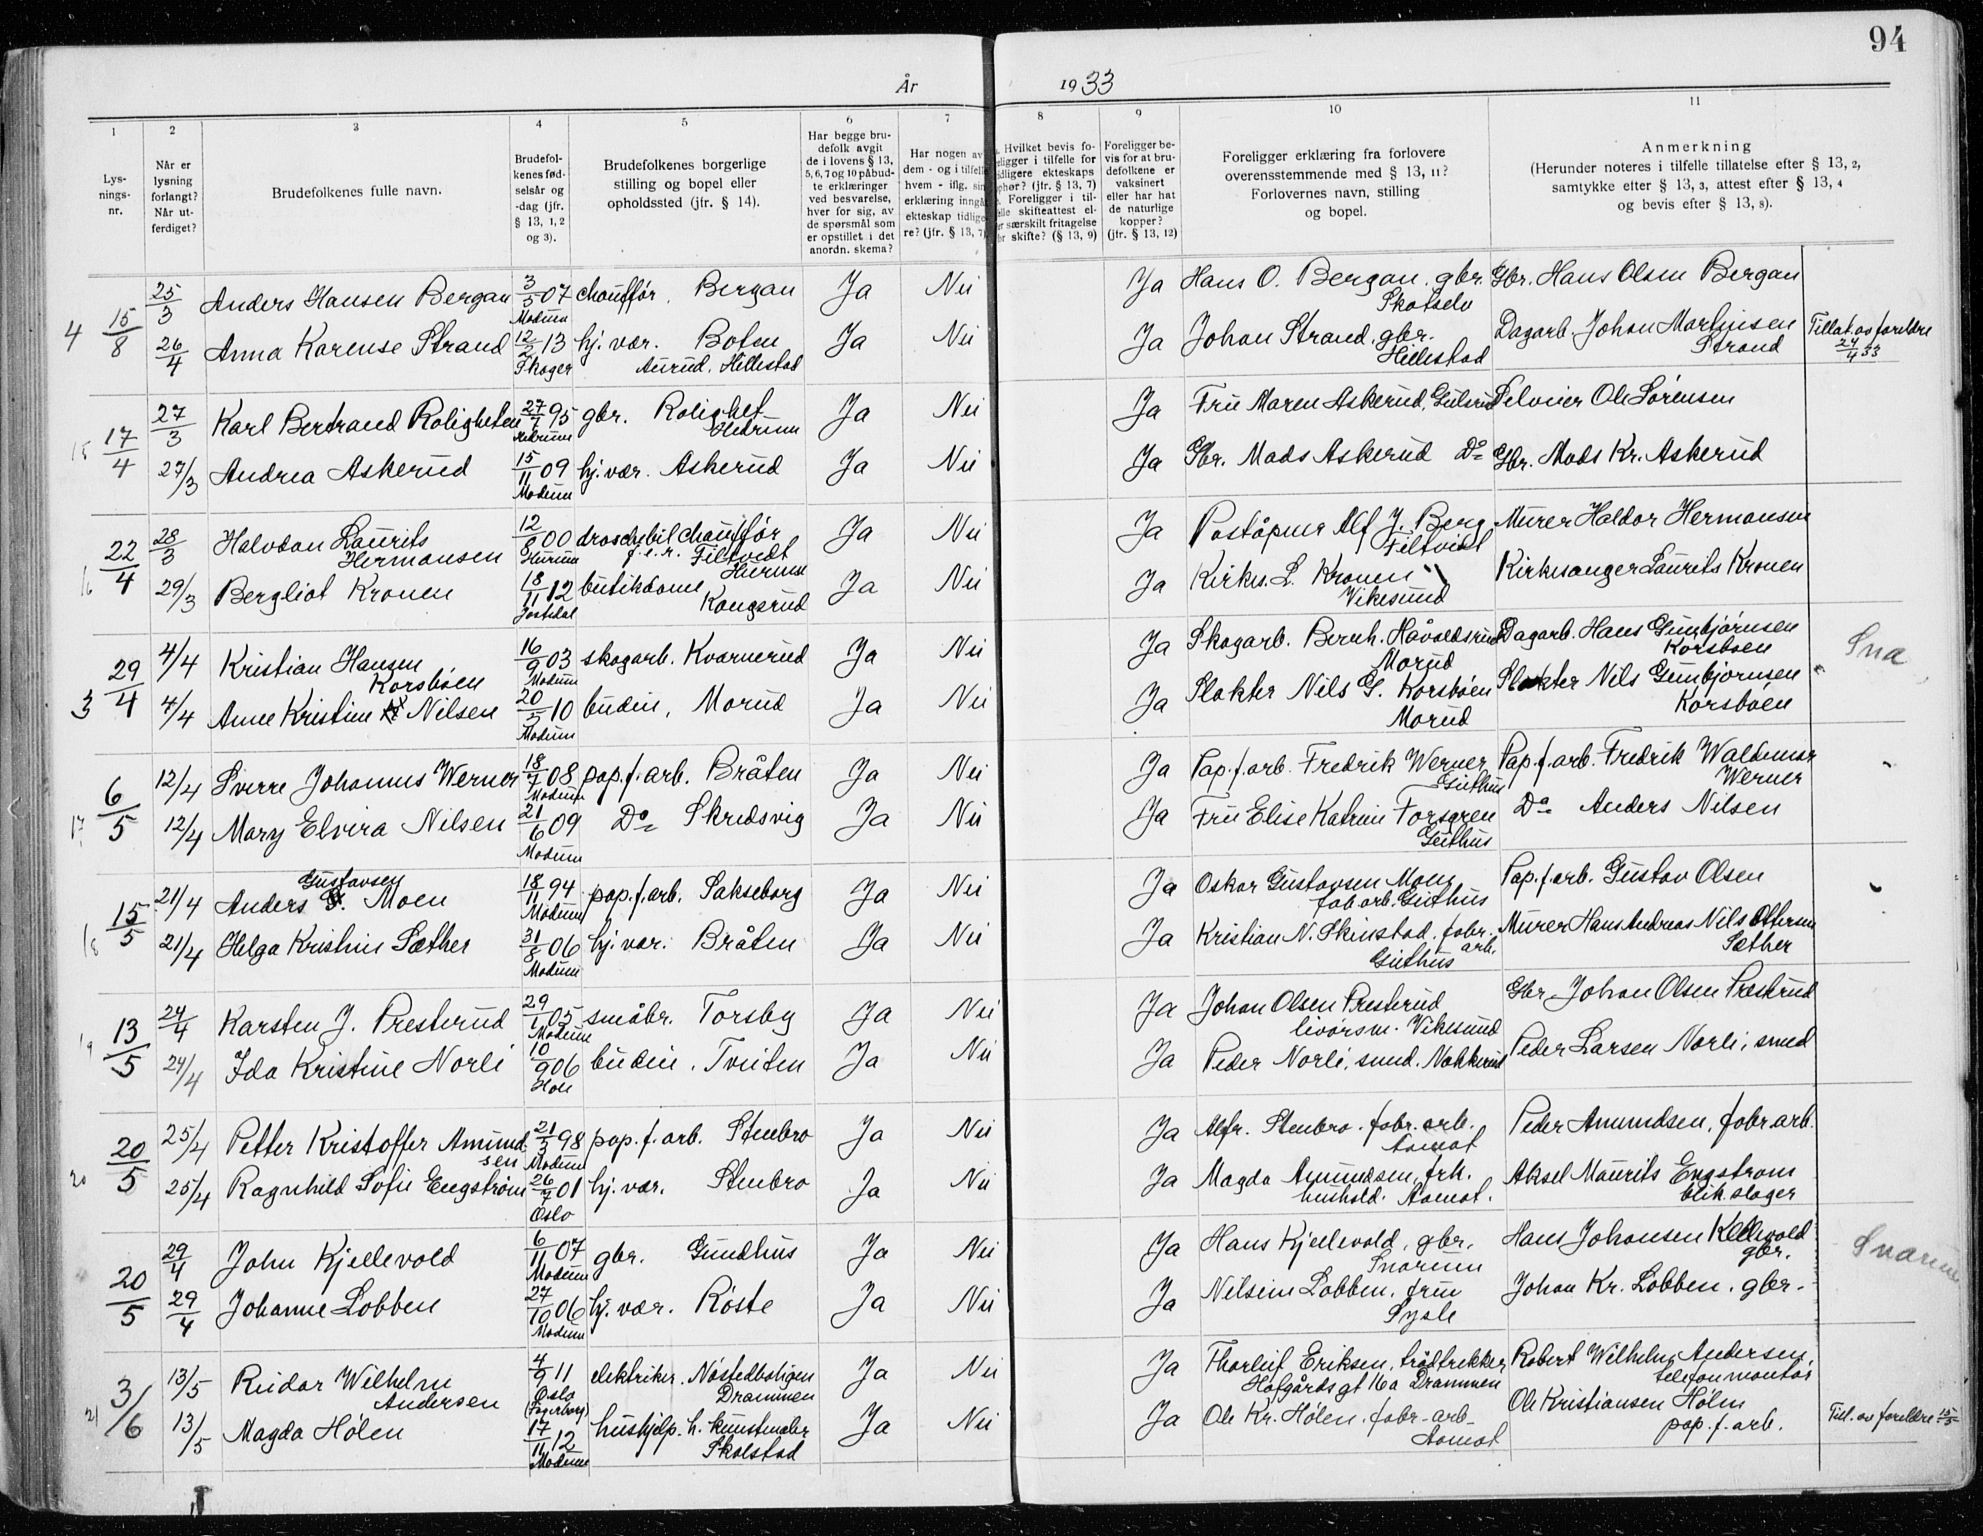 94
År 1933
1
2
3
4
5
6
7
8
9
10
11
Lys-
nings-
nr.
Når er
lysning
forlangt?
Når ut-
ferdiget?
Brudefolkenes fulle navn.
Brudefol-
kenes fød-
selsår og
-dag (jfr.
§ 13, 1, 2
og 3).
Brudefolkenes borgerlige
stilling og bopel eller
opholdssted (jfr. § 14).
Har begge bru-
defolk avgit
de i lovens § 13,
5, 6, 7 og 10 påbud-
te erklæringer
ved besvarelse,
hver for sig, av
de spørsmål som
er opstillet i det
anordn. skema?
Har nogen av
dem - og i tilfelle
hvem - iflg. sin
erklæring inngå
ekteskap tidlige
re? (jfr. § 13, 7)
Hvilket bevis fo-
religger i tilfelle for
tidligere ekteskaps
ophør? (jfr. § 13, 7)
Foreligger i til-
felle skifteattest el-
er særskilt fritagelse
for skifte? (§ 13, 9)
Foreligger be-
vis for at bru-
defolkene er
vaksinert
eller har hat
de naturlige
kopper?
(jfr. § 13, 12)
Foreligger erklæring fra forlovere
overensstemmende med § 13, 11?
Forlovernes navn, stilling
og bopel.
Anmerkning
(Herunder noteres i tilfelle tillatelse efter § 13, 2,
samtykke efter § 13, 3, attest efter § 13, 4
og bevis efter § 13, 8).
4 15/8 25/3 Anders Hansen Bergan 3/5 07 Modum chauffør, Bergan Ja Nei Ja Hans O. Bergan, gbr. Skotselv Gbr. Hans Olsen Bergan
26/4 Anna Karense Strand 12/2 13 Skoger hj. vær. Boten Aurud, Hillestad Ja Nei Ja Johan Strand, gbr. Hillestad Dagarb. Johan Martinsen Strand Tillat. av foreldre 24/4 33
15 17/4 27/3 Karl Bertrand Roligheten 27/7 95 gbr. Rolighet Ja Nei Ja Fru Maren Askerud, Gulsrud Selveier Ole Sørensen
27/3 Andrea Askerud 15/11 09 Modum hj. vær. Askerud Ja Nei Ja Gbr. Mads Askerud Do Gbr. Mads Kr. Askerud
16 22/4 28/3 Halvdan Laurits Hermansen 12/6 00 Hurum droschebilchauffør f.e.r. Filtvedt Hurum Ja Nei Ja Poståpner Alf J. Berg Filtvedt Murer Haldor Hermansen
29/3 Bergliot Kronen 18/11 12 Jostedal butikdame Kongsrud Ja Nei Ja Kirkes. L. Kronen Vikesund Kirkesanger Laurits Kronen
3 29/4 4/4 Kristian Hansen Korsbøen 16/9 03 Modum skogarb. Kvarnerud Ja Nei Ja Skogarb. Bernh. Håvoldsrud Morud Dagarb. Hans Gunbjørnsen Korsbøen Sna
4/4 Anne Kristine Nilsen 20/5 10 Modum budeie, Morud Ja Nei Ja Slakter Nils G. Korsbøen Morud Slakter Nils Gunbjørnsen Korsbøen
17 6/5 12/4 Sverre Johannes Werner 18/7 08 Modum pap.f.arb. Bråten Ja Nei Ja Pap.f.arb. Fredrik Werner Geithus Pap.f.arb. Fredrik Waldemar Werner
12/4 Mary Elvira Nilsen 21/6 09 Modum Do Skredsvig Ja Nei Ja Fru Elise Katrine Forsgren Geithus Do Anders Nilsen
18 15/5 21/4 Anders G. Gustavsen Moen 18/11 94 Modum pap.f.arb. Sakseborg Ja Nei Ja Oskar Gustavsen Moen fab.arb. Geithus Pap.f.arb. Gustav Olsen
21/4 Helga Kristine Sæther 31/8 06 Modum hj. vær. Bråten Ja Nei Ja Kristian N. Skinstad, fabr. arb. Geithus Murer Hans Andreas Nils Ottersen Sæther
19 13/5 24/4 Karsten J. Presterud 29/1 05 Modum småbr. Torsby Ja Nei Ja Johan Olsen Presterud livørsm. Vikesund Gbr. Johan Olsen Præsterud
24/4 Ida Kristine Norli 10/9 06 Hole budeie, Tveiten Ja Nei Ja Peder Norli, smed, Nakkerud Peder Larsen Norli, smed
20 20/5 25/4 Petter Kristoffer Amundsen 21/3 98 Modum pap.f.arb. Stenbro Ja Nei Ja Alfr. Stenbro, fabr. arb. Aamot Peder Amundsen, fabr.arb.
25/4 Ragnhild Sofie Engstrøm 26/7 01 Oslo hj. vær. Stenbro Ja Nei Ja Magda Amundsen, frk. hushold. Aamot. Aksel Maurits Engstrøm blik.slager
20/5 29/4 John Kjellevold 6/11 07 Modum gbr. Gundhus Ja Nei Ja Hans Kjellevold, gbr. Snarum Hans Johansen Kjellevold gbr. Snarum
29/4 Johanne Lobben 27/10 06 Modum hj. vær. Røste Ja Nei Ja Nilsine Lobben, frue Sysle Johan Kr. Lobben, gbr.
21 3/6 13/5 Reidar Wilhelm Andersen 4/9 11 Oslo (Fagerborg) elektriker, Nøstedboligen Drammen Ja Nei Ja Thorleif Eriksen, trådtrekker Hofgårds gt 16a Drammen Robert Wilhelm Andersen, telefonmontør
13/5 Magda Hølen 17/11 12 Modum hushjelp. h. kunstmaler Skalstad Ja Nei Ja Ole Kr. Hølen, fabr-arb- Aamot Ole Kristiansen Hølen pap.f.arb. Till. av foreldre 15/5